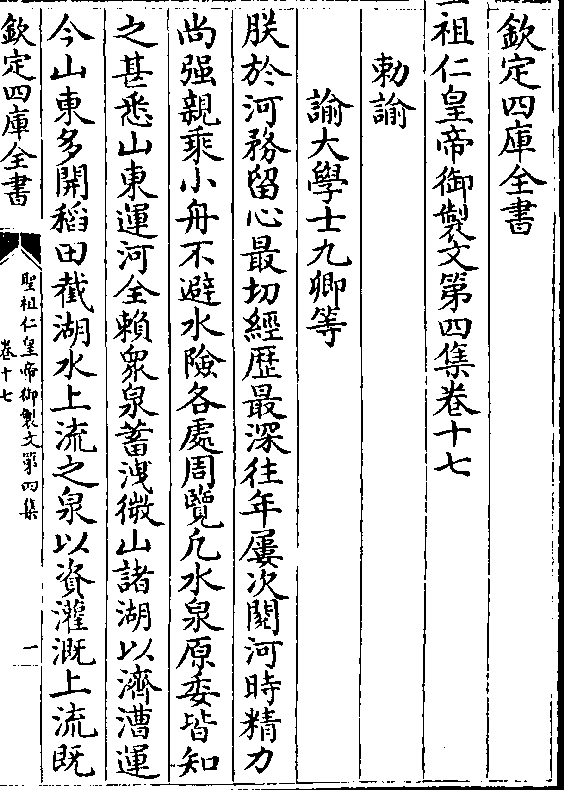 欽定四庫全書
祖仁皇帝御製文第四集卷十七
勅諭
諭大學士九卿等
朕於河務留心最切經歴最深往年屢次閱河時精力
尚强親乘小舟不避水險各處周覽凡水泉原委皆知
之甚悉山東運河全賴衆泉蓄洩微山諸湖以濟漕運
今山東多開稻田截湖水上流之泉以資灌溉上流既
欽定四庫全書
聖祖仁皇帝御製文第四集
卷十七
一